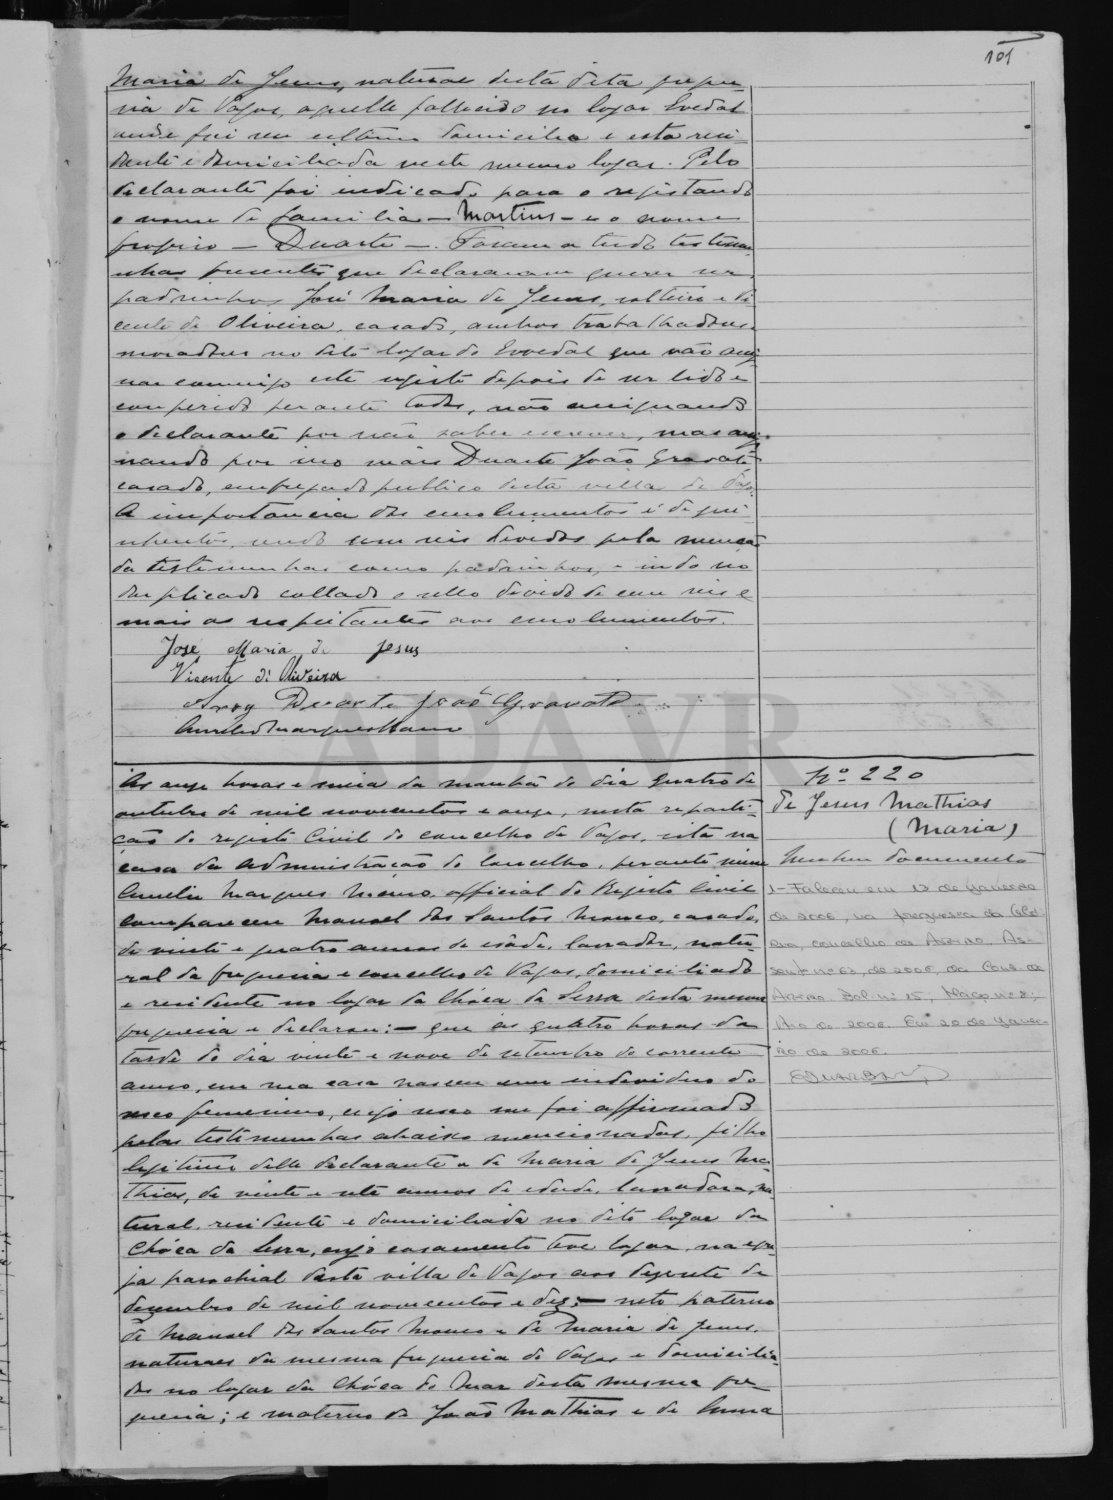 101
Maria de Jesus, natural desta dita fregue-
sia de Vagos, aquelle fallecido no logar Covedal
onde foi seu ultimo domicilio e esta resi-
dente e domiciliada neste mesmo logar. Pelo
declarante foi indicado para o registando
o nome de familia — Martins — e o nome
proprio — Duarte —. Foram a tudo testemu-
nhas presentes que declararam querer ser
padrinhos José Maria de Jesus, solteiro e Vi-
cente de Oliveira, casado, ambos trabalhadores
moradores no dito logar do que vão assi-
nar commigo este registo depois de ser lido e
conferido perante todos, não assignando
o declarante por não saber escrever, mas assi-
nando por isso mais Duarte João Gravato
casado, empregado publico desta villa de Vagos.
A importancia dos emolumentos é de qui-
nhentos, sendo cem reis devidos pela menção
da testemunhas como padrinhos, e indo no
duplicado collado o sello devido de cem reis e
mais os respeitantes aos emolumentos.
José Maria de Jesus
Vicente di Oliveira
Duarte João Gravato
Aurelio Marques Mano
ADAVR
Ás onze horas e meia da manhã do dia quatro de
outubro de mil novecentos e onze, nesta reparti-
ção do registo Civil do concelho de Vagos, sita na
casa da administração do concelho, perante mim
Aurelio Marques Mano, official do Registo Civil
compareceu Manoel dos Santos Mouco, casado,
de vinte e quatro annos de idade, lavrador, natu-
ral da freguesia e concelho de Vagos, domiciliado
e residente no logar da Chóca da Serra desta mesma
freguesia e declarou: — que ás quatro horas da
tarde do dia vinte e nove de setembro do corrente
anno, em sua casa nasceu um individuo do
sexo femenino, cujo sexo me foi affirmado
pelas testemunhas abaixo mencionadas, filho
legitimo delle declarante e de Maria de Jesus Ma-
thias, de vinte e sete annos de edade, lavradora, na-
tural, residente e domiciliada no dito logar da
Chóca da Serra, cujo casamento teve logar na egre-
ja parochial desta villa de Vagos aos dezesete de
dezembro de mil novecentos e dez; — neto paterno
de Manoel dos Santos Mouco e de Maria de Jesus,
naturaes da mesma freguesia de Vagos e domicilia-
dos no logar da Chóca do Mar desta mesma fre-
guesia; e materno de João Mathias e de
Nº 220
de Jesus Mathias
(Maria)
Nenhum documento
1 - Faleceu em 13 de Janeiro
de 2006, na freguesia da Gló-
ria, concelho de Aveiro. As-
sento nº 63, de 2006, da Cons. de
Aveiro. Bol. nº 15, Maço nº 8,
Ano de 2006. Em 20 de Janei-
ro de 2006.